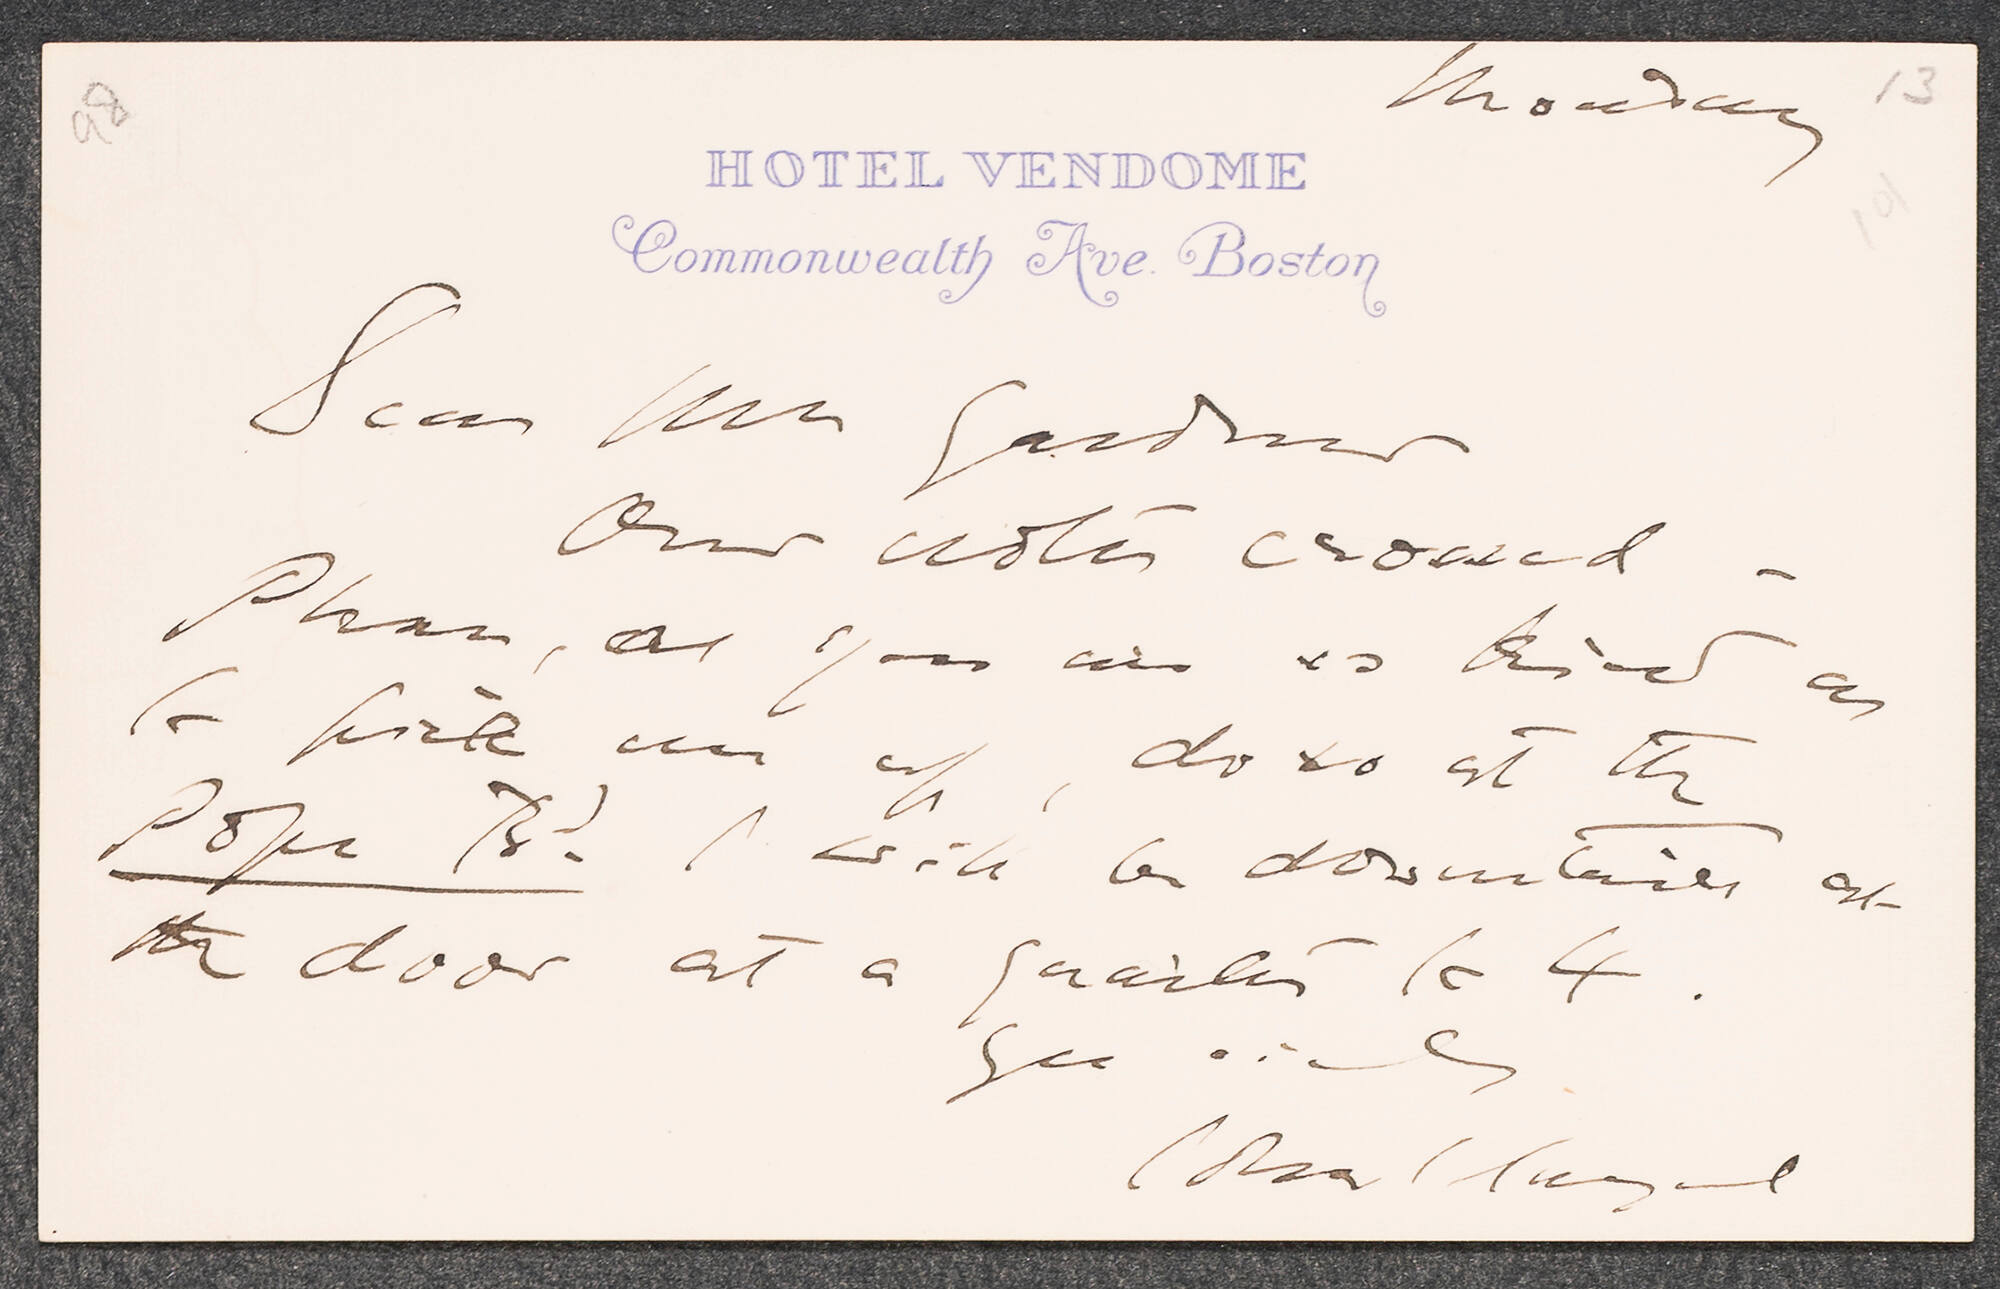 98
Monday
13
101
HOTEL VENDOME
Commonwealth Ave. Boston
Dear Mrs Gardner
Our notes crossed -
Please, as you are so kind as
to pick me up, do so at the
Pope Bd. I will be downstairs at
the door at a quarter to 4.
Yrs sincerely
John S Sargent